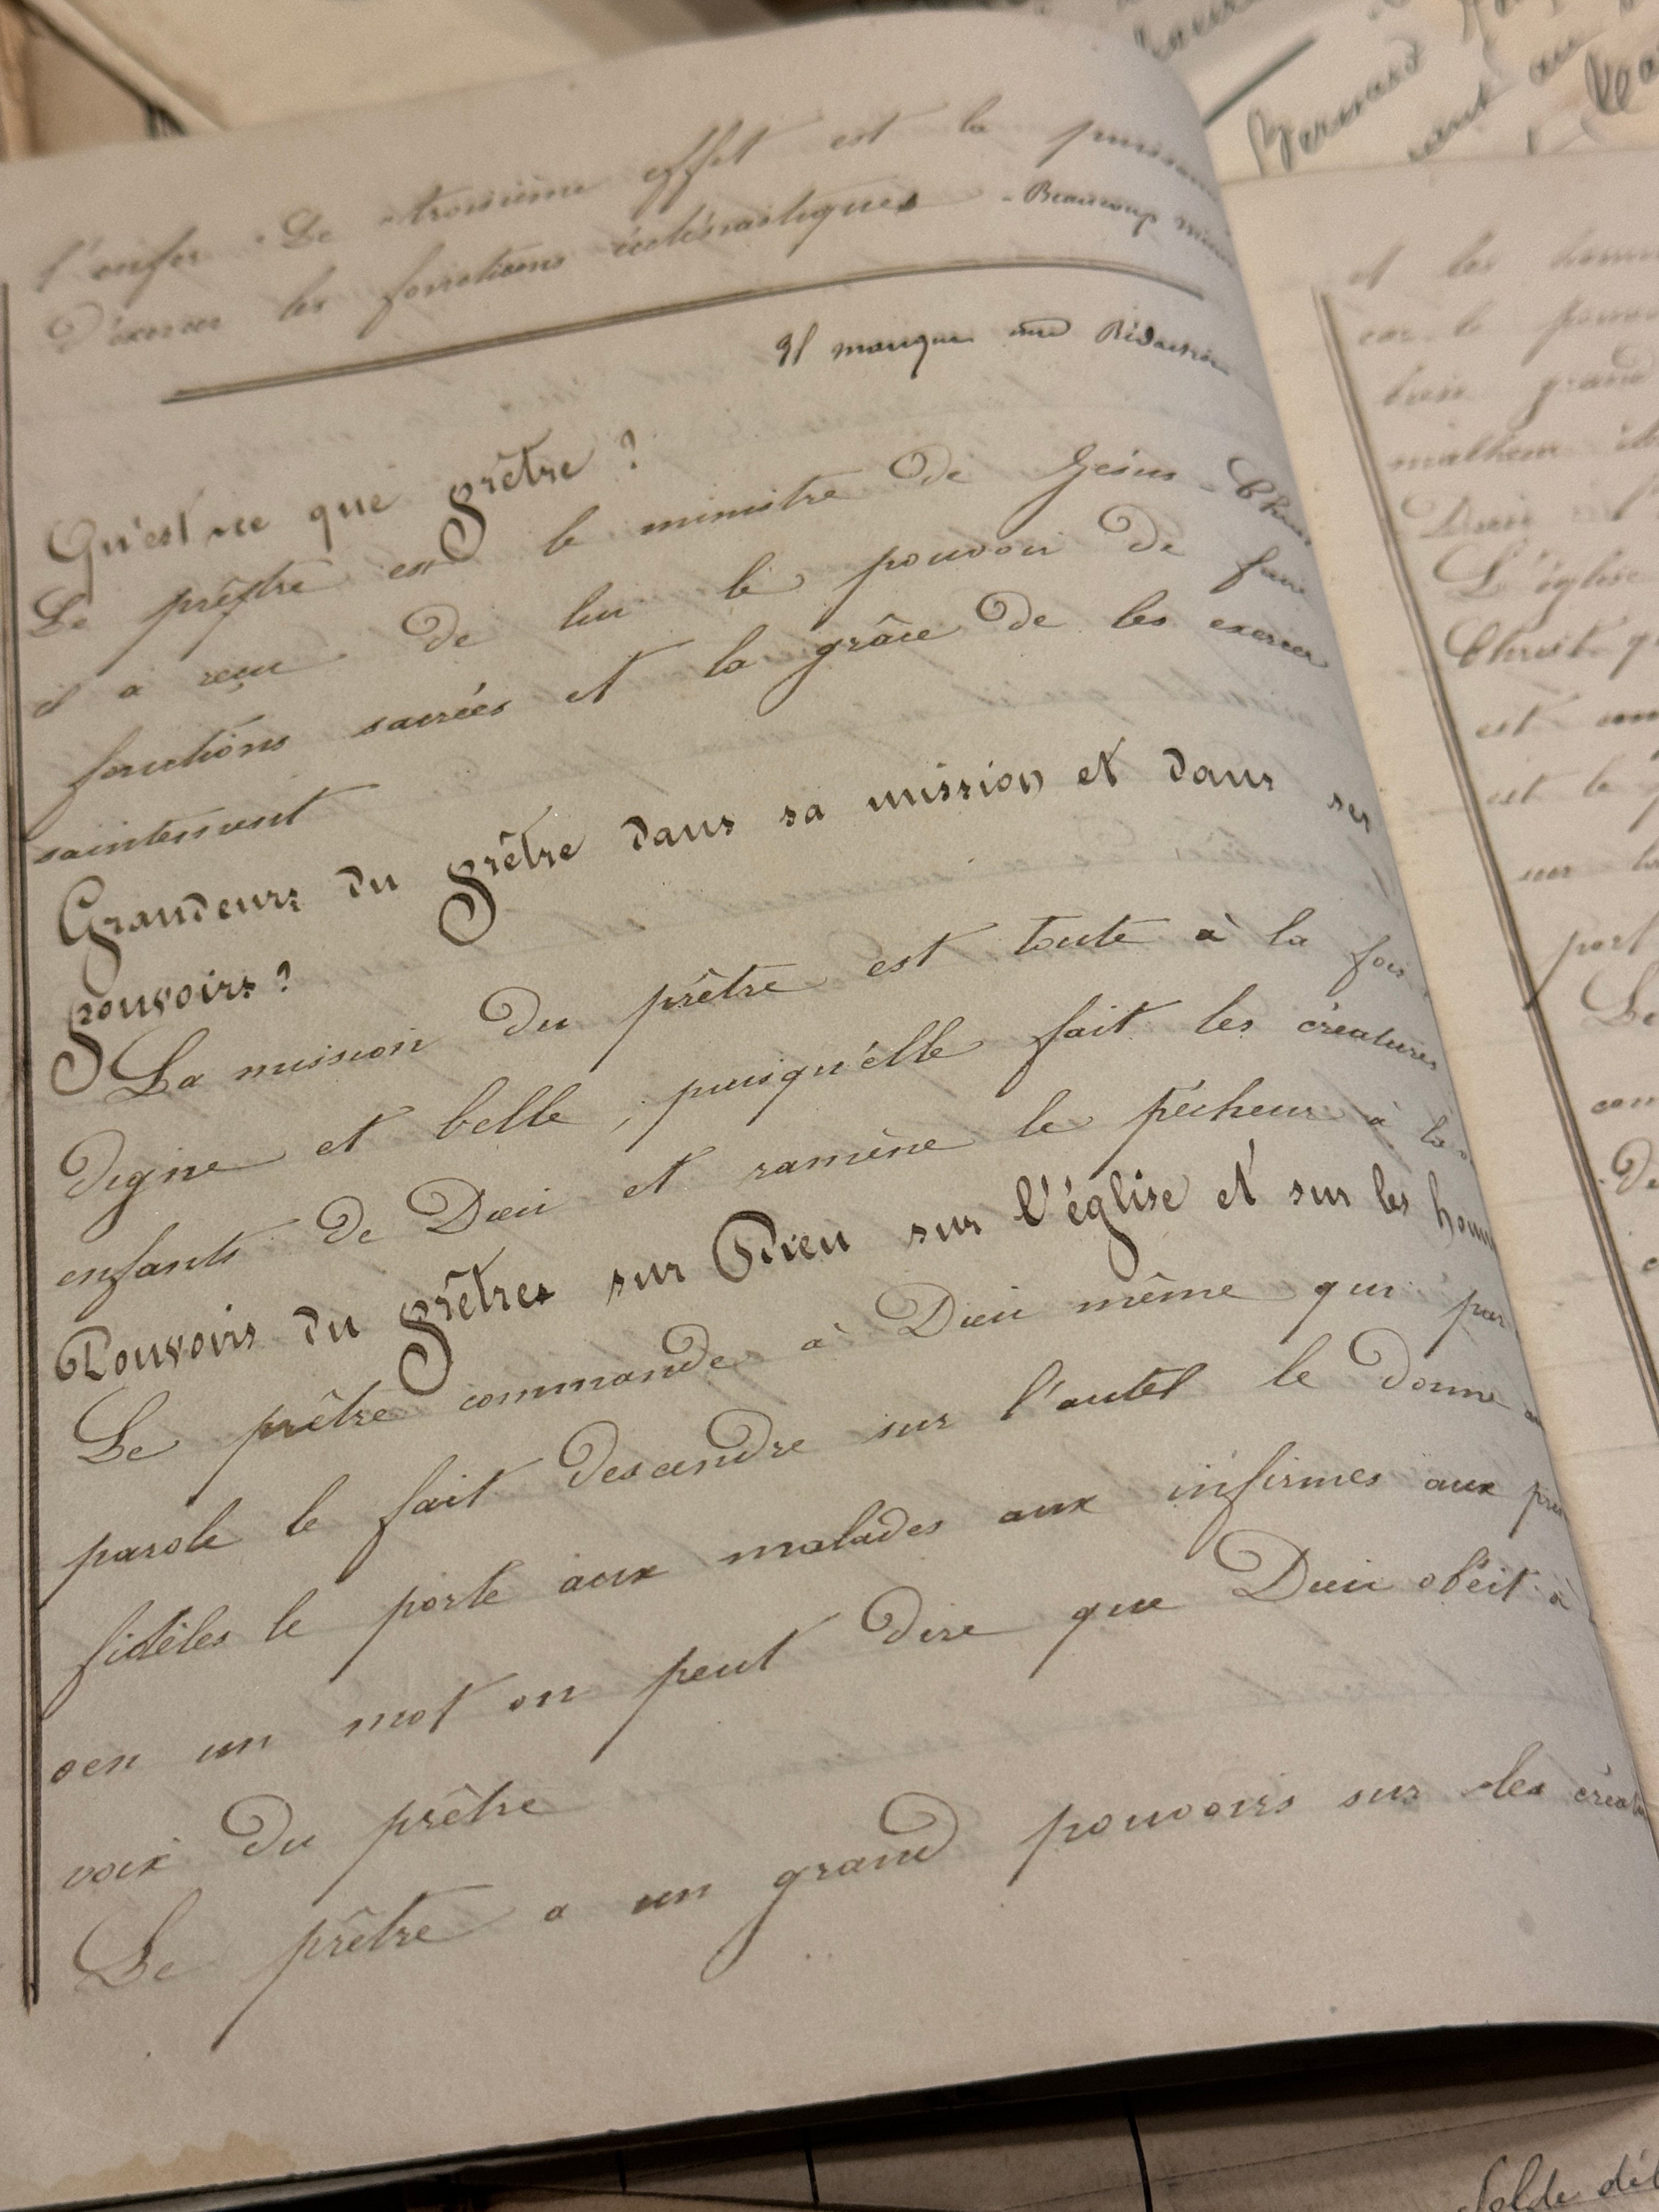 l'enfer. Le troisième effet est la
D'exercer les fonctions ecclésiastiques - Beaucoup mieux
Il manque une Rédaction
Qu'est-ce que prêtre ?
Le prêtre est le ministre de Jésus-Christ
il a reçu de lui le pouvoir de faire
fonctions sacrées et la grâce de les exercer
saintement
Grandeurs du prêtre dans sa mission et dans ses
pouvoirs ?
La mission du prêtre est toute à la fois
digne et belle, puisqu'elle fait les créatures
enfants de Dieu et ramène le pécheur à la
Pouvoirs du prêtres sur Dieu sur l'église et sur les
Le prêtre commande à Dieu même qui par
parole le fait descendre sur l'autel le donne
fidèles le porte aux malades aux infirmes aux
en un mot on peut dire que Dieu obéit à
voix du prêtre
Le prêtre a un grand pouvoirs sur les
et les
car le
bien grand
Dieu l'
L'église
Christ
est
est le
sur la
port
Le
De
Bernard
Solde